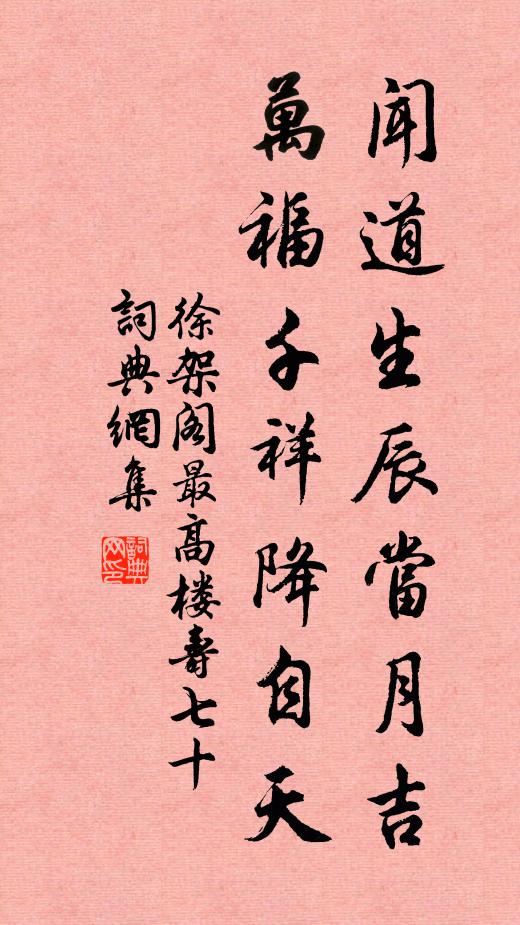 聞道生辰當月吉
萬福千祥降自天
徐架阁最高楼壽七十
詞典網集
詞典网印